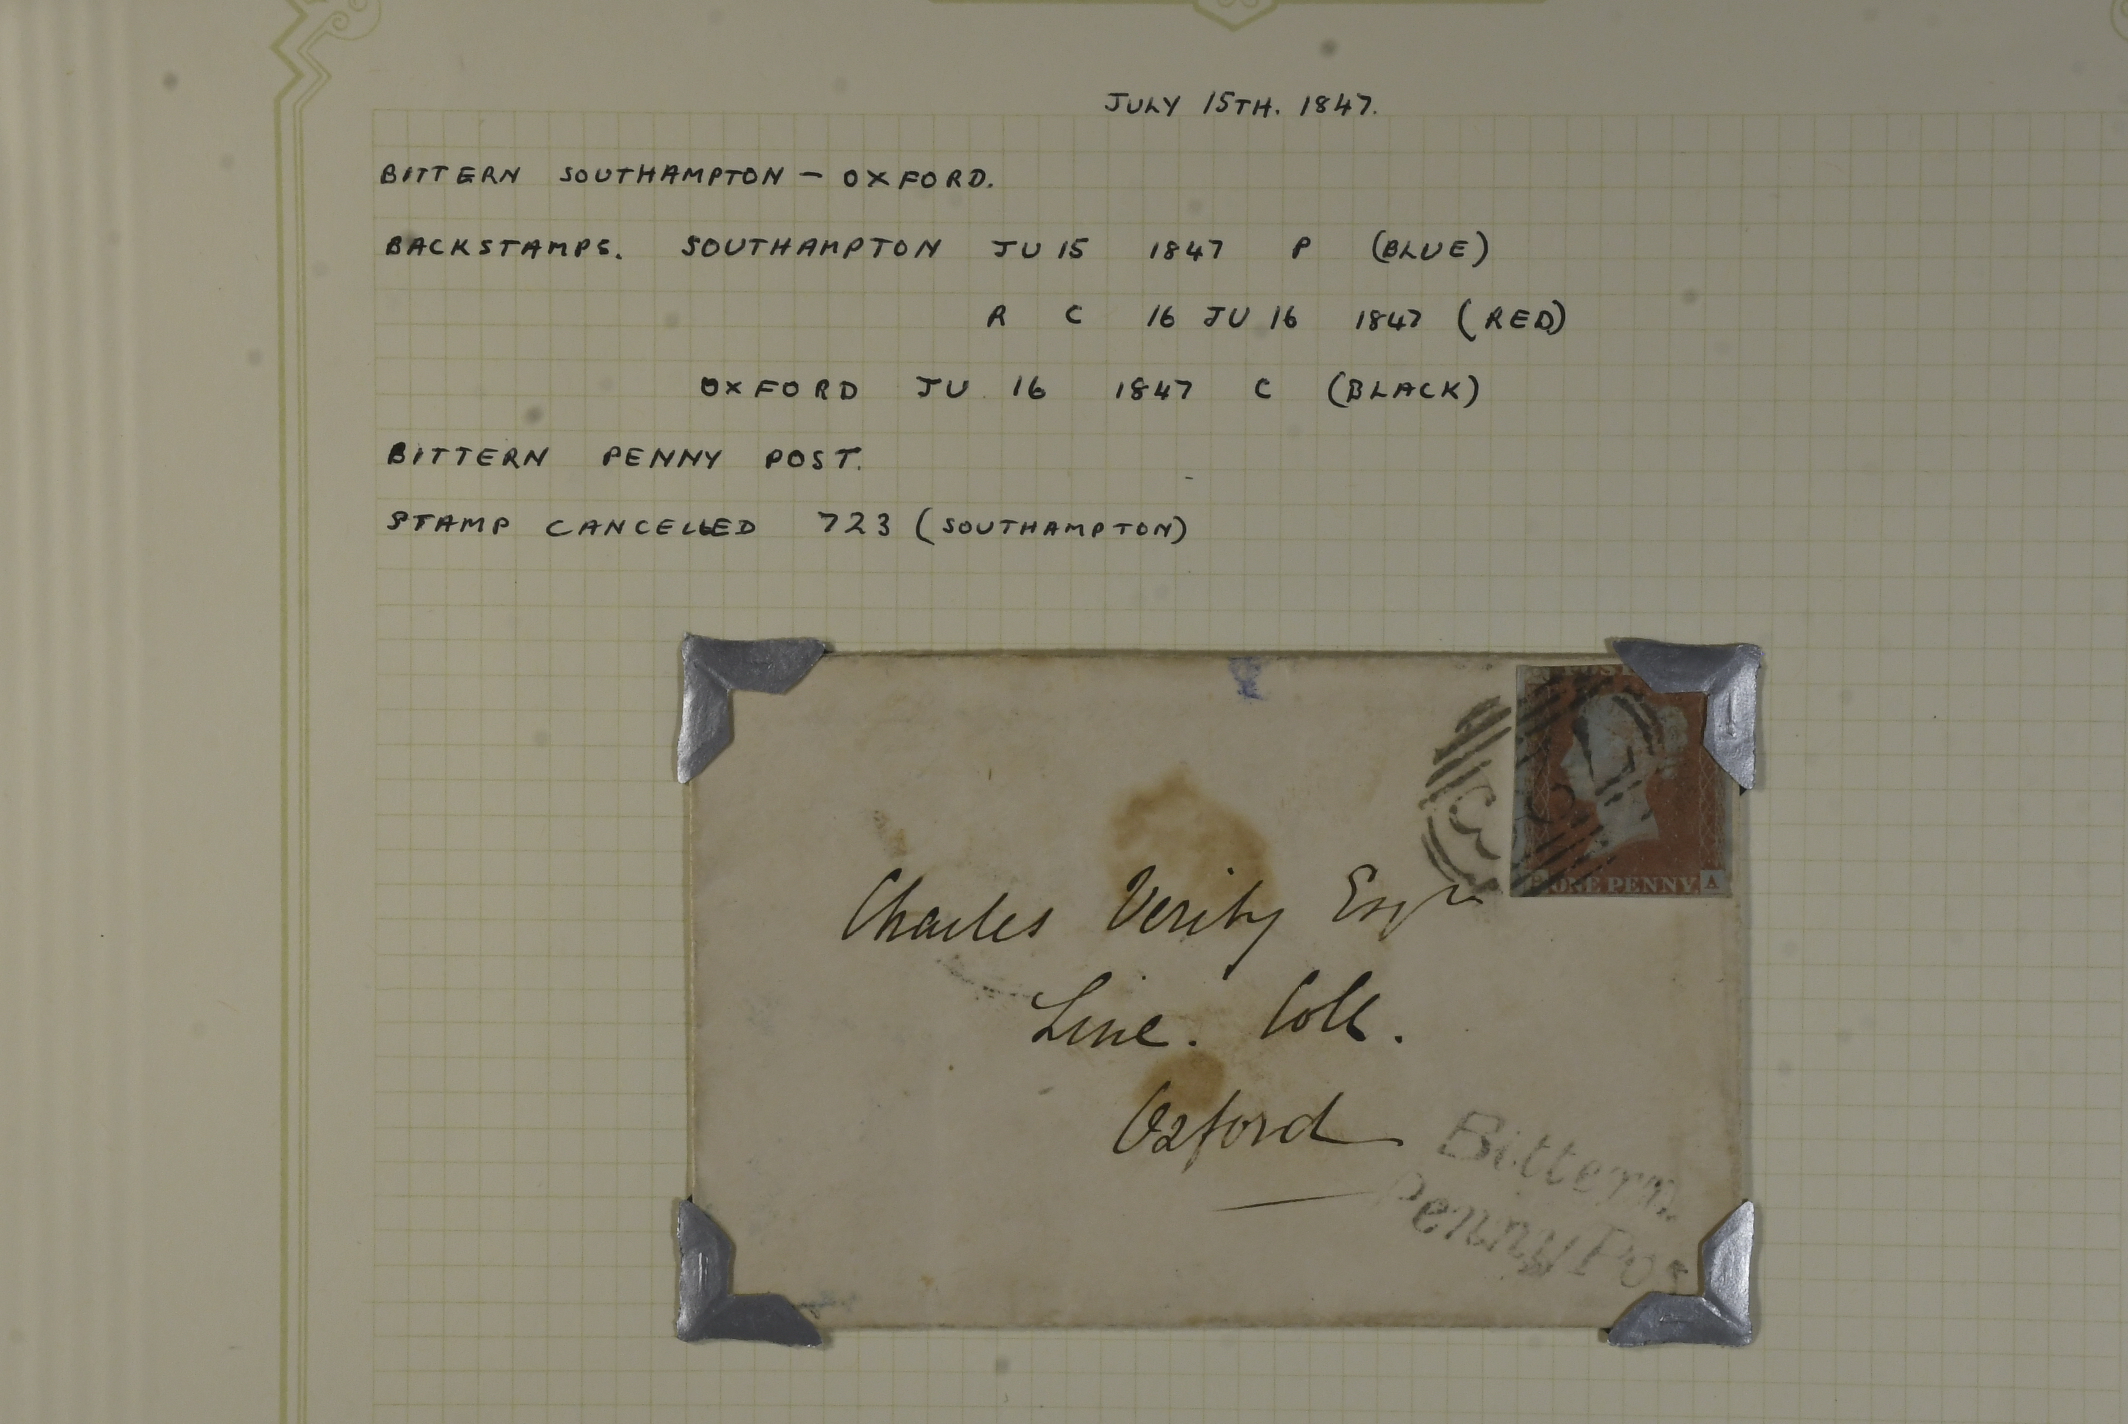 JULY 15TH. 1847.
BITTERN SOUTHAMPTON – OXFORD.
BACKSTAMPS. SOUTHAMPTON JU 15 1847 P (BLUE)
R C 16 JU 16 1847 (RED)
OXFORD JU 16 1847 C (BLACK)
BITTERN PENNY POST.
STAMP CANCELLED 723 (SOUTHAMPTON)
723
ONE PENNY. A
Charles Verity Esqre
Linc. Coll.
Oxford
Bittern
Penny Pos